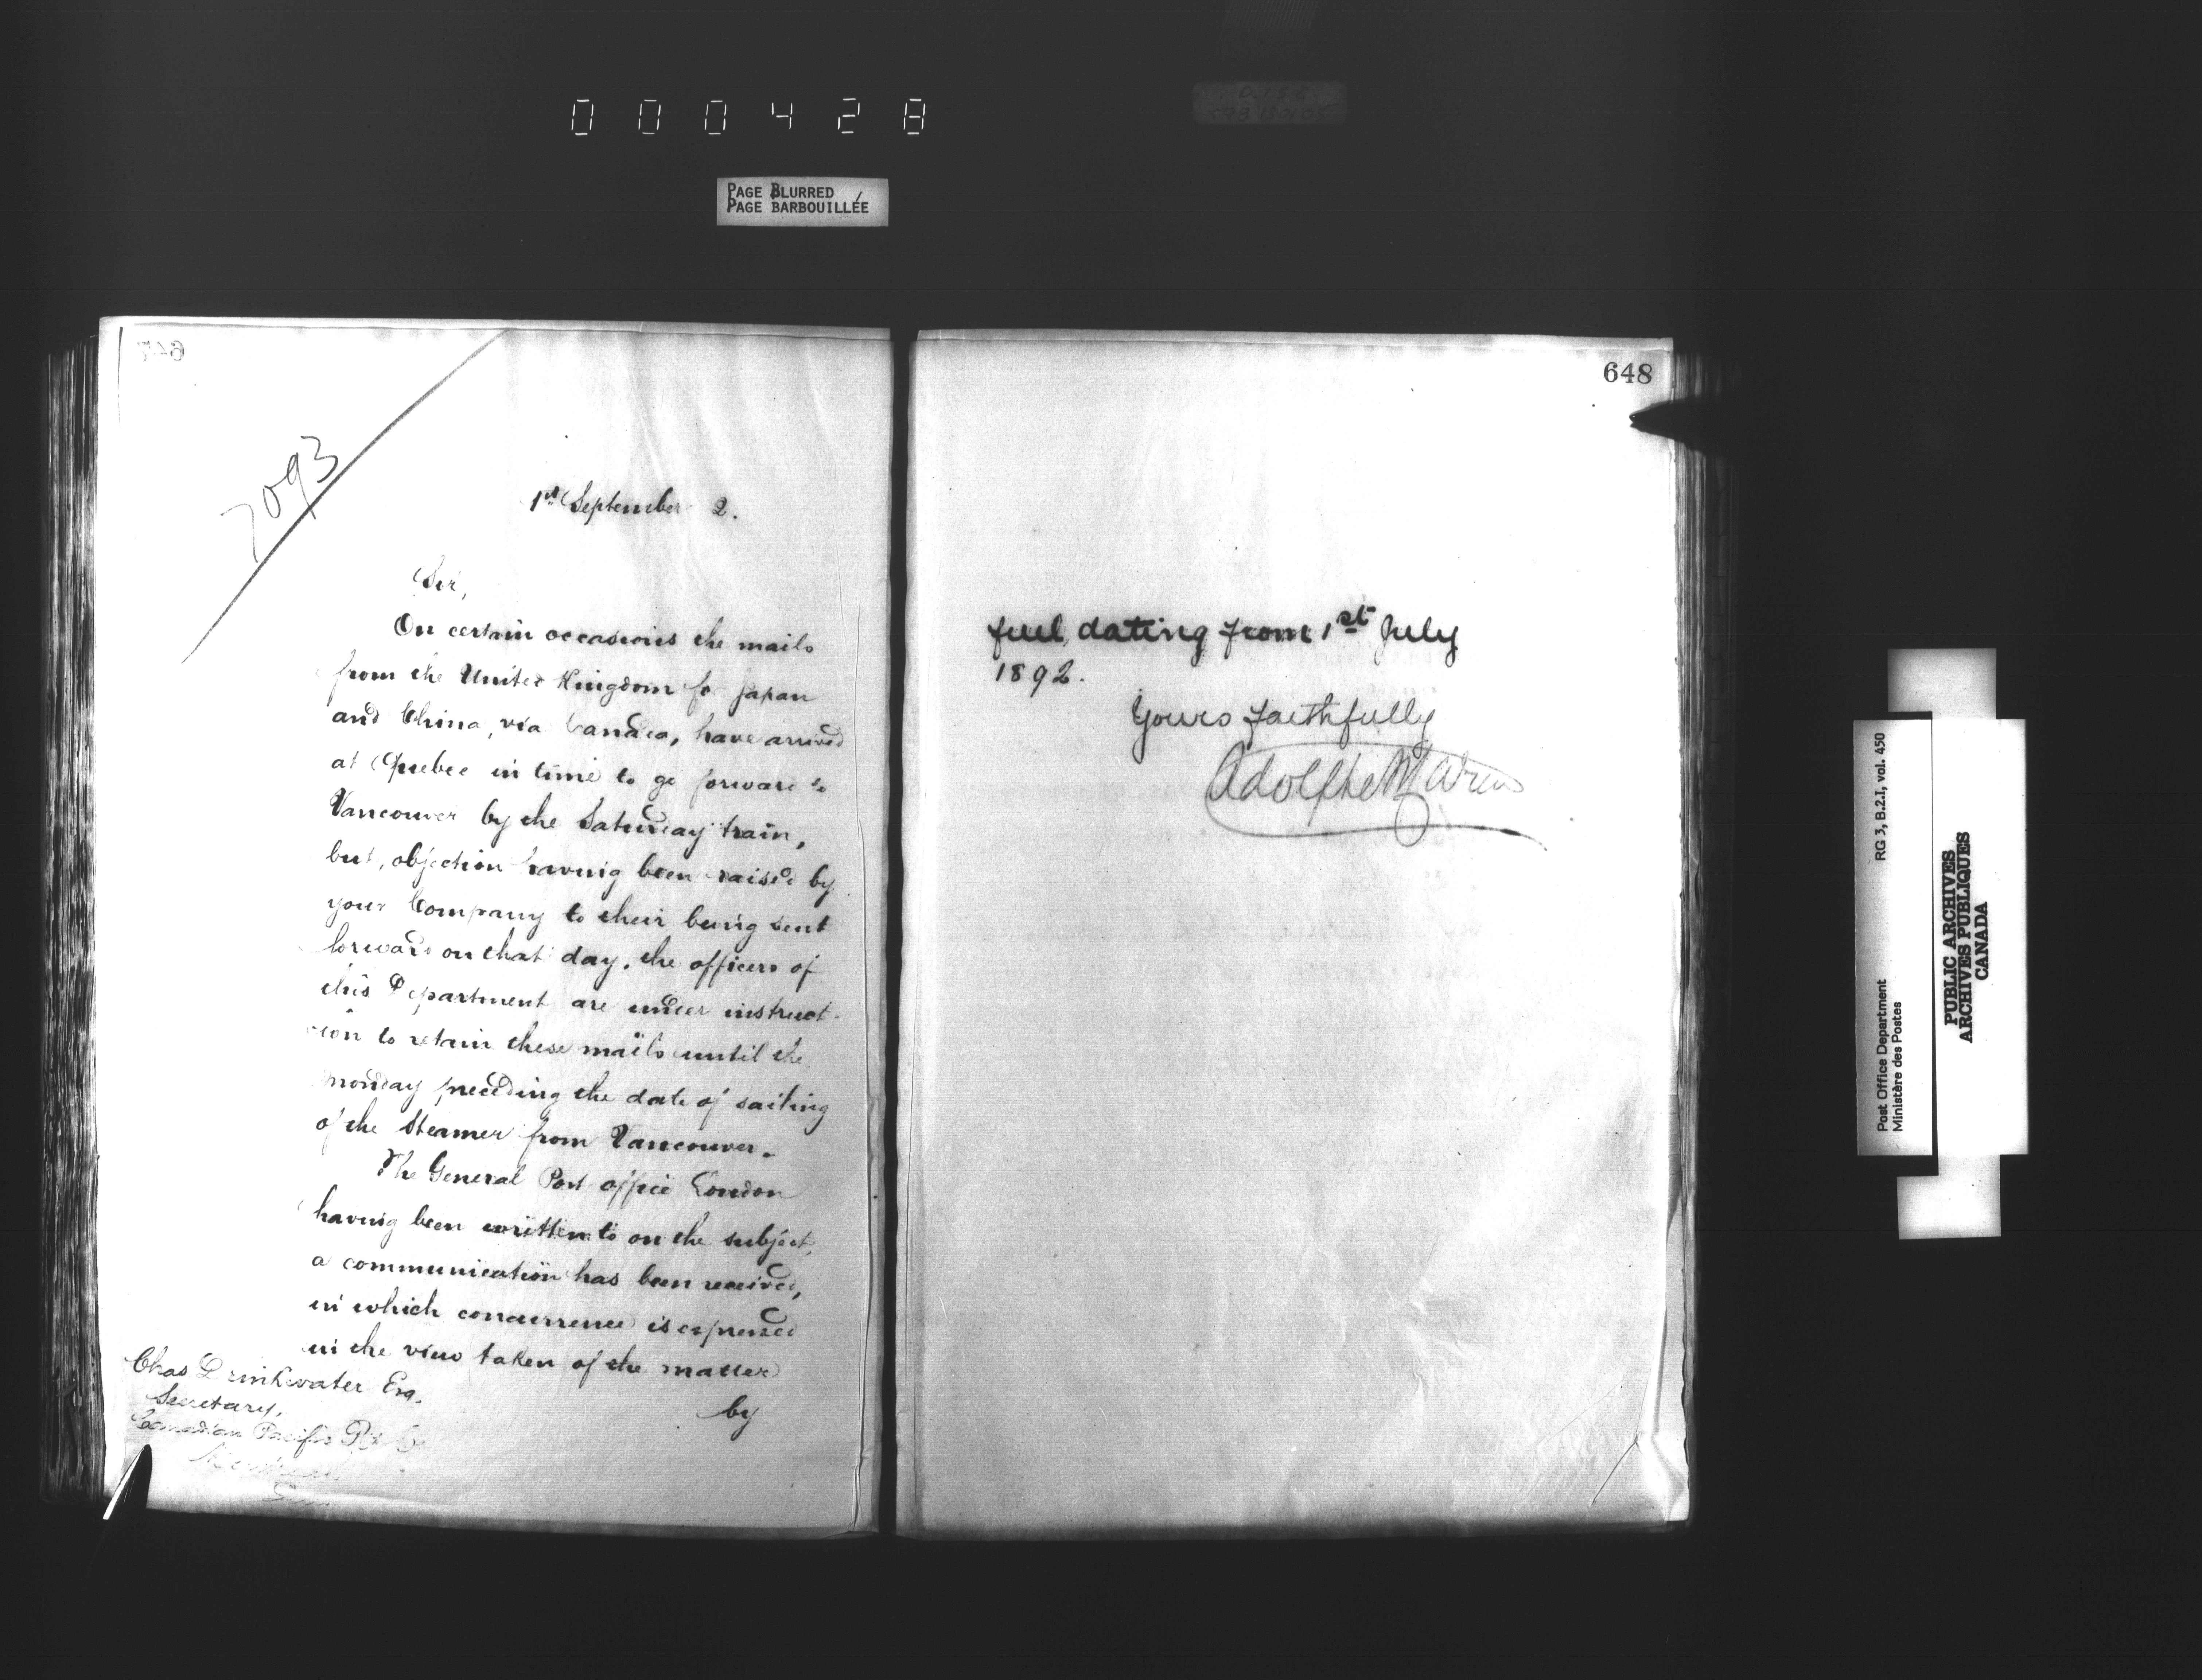 000428
PAGE BLURRED
PAGE BARBOUILLÉE
7093
1st September 2.
Sir,
On certain occasions the mails
from the United Kingdom for Japan
and China, via Canada, have arrived
at Quebec in time to go forward to
Vancouver by the Saturday train,
but, objection having been raised by
your Company to their being sent
forward on that day, the officers of
this Department are under instruct-
ion to retain these mails until the
Monday preceding the date of sailing
of the Steamer from Vancouver.
The General Post office London
having been written to on the subject,
a communication has been received,
in which concurrence is expressed
in the view taken of the matter
by
Chas Drinkwater Esq.
Secretary,
Canadian Pacific Ry Co
Montreal
648
fuel, dating from 1st July
1892.
Yours faithfully
Adolphe Caron
RG 3, B.2.I, vol. 450
Post Office Department
Ministère des Postes
PUBLIC ARCHIVES
ARCHIVES PUBLIQUES
CANADA